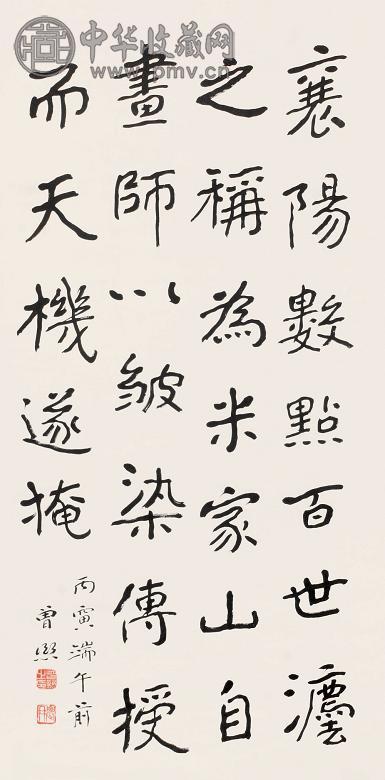 襄陽數點百世灋
之稱為米家山自
畫師以皴染傳授
而天機遂掩
丙寅端午前
曾熙
中华收藏网